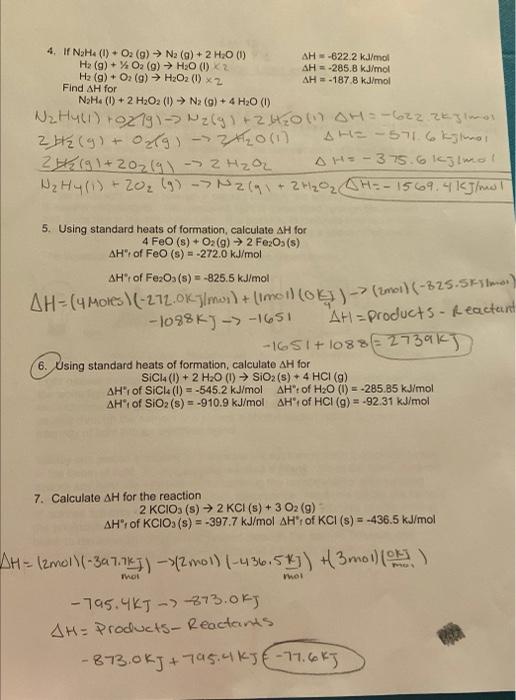 4. If N₂H₄ (l) + O₂ (g) → N₂ (g) + 2 H₂O (l) ΔH = -622.2 kJ/mol
H₂ (g) + ½ O₂ (g) → H₂O (l) ×2 ΔH = -285.8 kJ/mol
H₂ (g) + O₂ (g) → H₂O₂ (l) ×2 ΔH = -187.8 kJ/mol
Find ΔH for
N₂H₄ (l) + 2 H₂O₂ (l) → N₂ (g) + 4 H₂O (l)
N₂H₄(l) + O₂(g) -> N₂(g) + 2 H₂O (l) ΔH = -622.2kJ/mol
2 H₂ (g) + O₂(g) -> 2 H₂O (l) ΔH = -571.6 kJ/mol
2 H₂ (g) + 2O₂ (g) -> 2 H₂O₂ ΔH = -375.6 kJ/mol
N₂H₄(l) + 2O₂ (g) -> N₂ (g) + 2H₂O₂ ΔH = -1569.4 kJ/mol
5. Using standard heats of formation, calculate ΔH for
4 FeO (s) + O₂ (g) → 2 Fe₂O₃ (s)
ΔH°f of FeO (s) = -272.0 kJ/mol
ΔH°f of Fe₂O₃ (s) = -825.5 kJ/mol
ΔH = (4 moles)(-272.0KJ/mol) + (1mol)(0 KJ) -> (2mol)(-825.5KJ/mol)
-1088KJ -> -1651 ΔH = products - Reactant
-1651 + 1088 = 2739KJ
6. Using standard heats of formation, calculate ΔH for
SiCl₄ (l) + 2 H₂O (l) → SiO₂ (s) + 4 HCl (g)
ΔH°f of SiCl₄ (l) = -545.2 kJ/mol ΔH°f of H₂O (l) = -285.85 kJ/mol
ΔH°f of SiO₂ (s) = -910.9 kJ/mol ΔH°f of HCl (g) = -92.31 kJ/mol
7. Calculate ΔH for the reaction
2 KClO₃ (s) → 2 KCl (s) + 3 O₂ (g)
ΔH°f of KClO₃ (s) = -397.7 kJ/mol ΔH°f of KCl (s) = -436.5 kJ/mol
ΔH = (2mol)(-397.7KJ/mol) -> (2mol)(-436.5KJ/mol) + (3mol)(0KJ/mol)
-795.4KJ -> -873.0KJ
ΔH = Products - Reactants
-873.0KJ + 795.4KJ = -77.6KJ